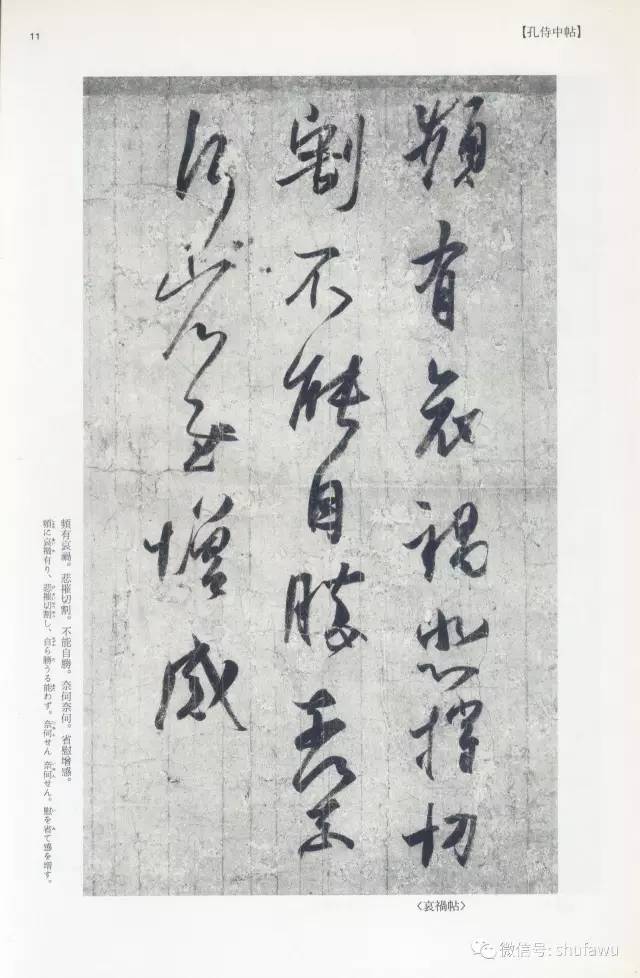 11
【孔侍中帖】
頻有哀禍悲摧切
割不能自勝奈何奈
何省慰增感
頻有哀禍。悲摧切割。不能自勝。奈何奈何。省慰增感。
頻に哀禍有り、悲摧切割し、自ら勝うる能わず。奈何せん 奈何せん。慰を省て感を増す。
〈哀禍帖〉
微信号: shufawu